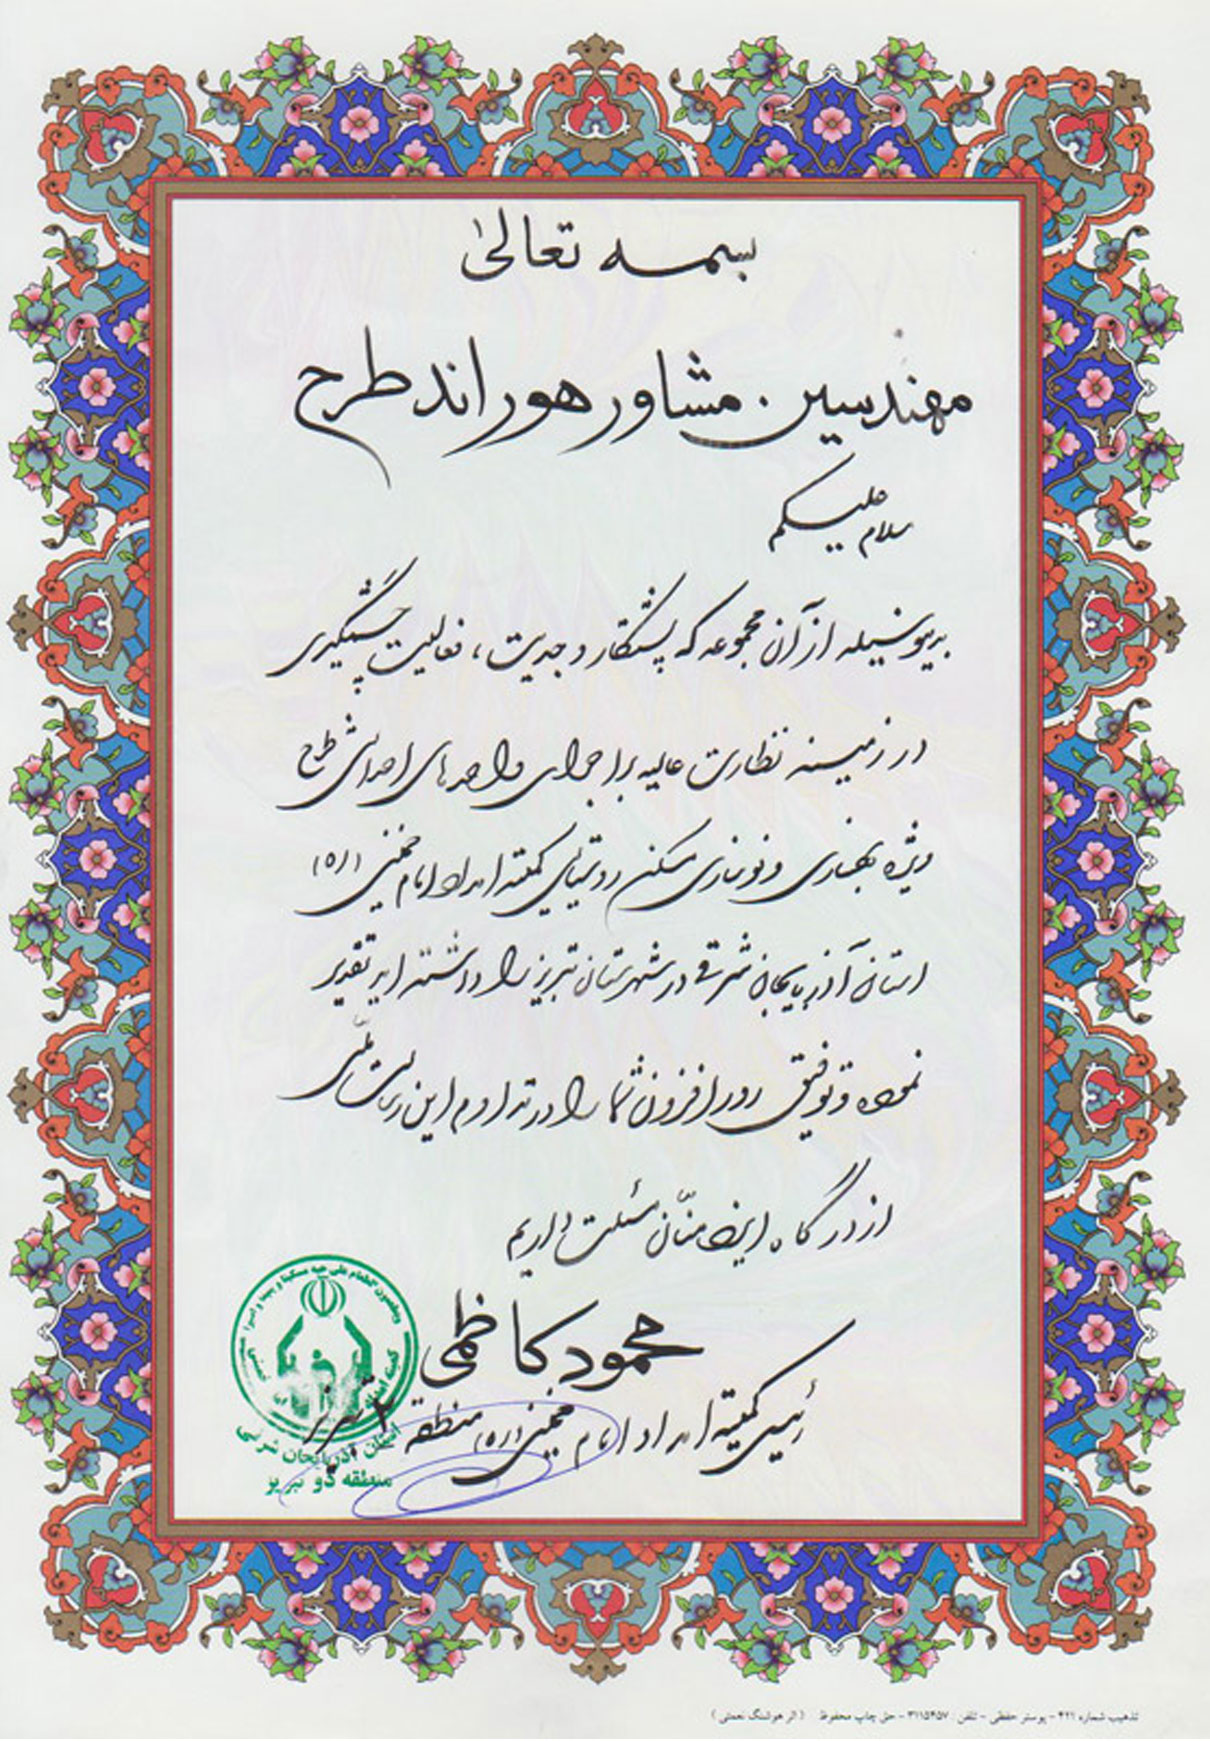 بسمه تعالیٰ
مهندسین مشاور هوراند طرح
سلام علیکم
بدینوسیله از آن مجموعه که پشتکار و جدیت ، فعالیت چشمگیری
در زمینه نظارت عالیه بر اجرای واحدهای احداثی طرح
ویژه بهسازی و نوسازی مسکن روستایی کمیته امداد امام خمینی (ره)
استان آذربایجان شرقی در شهرستان تبریز را داشته اید تقدیر
نموده و توفیق روز افزون شما را در تداوم این رسالت ملّی
از درگاه ایزد منّان مسئلت داریم
محمود کاظمی
رئیس کمیته امداد امام خمینی (ره) منطقه ۲ تبریز
کمیته امداد
استان آذربایجان شرقی
منطقه دو تبریز
تذهیب شماره ۴۲۱ - پوستر حفظی - تلفن : ۳۱۱۵۴۵۷ - حق چاپ محفوظ ( اثر هوشنگ نعمتی )